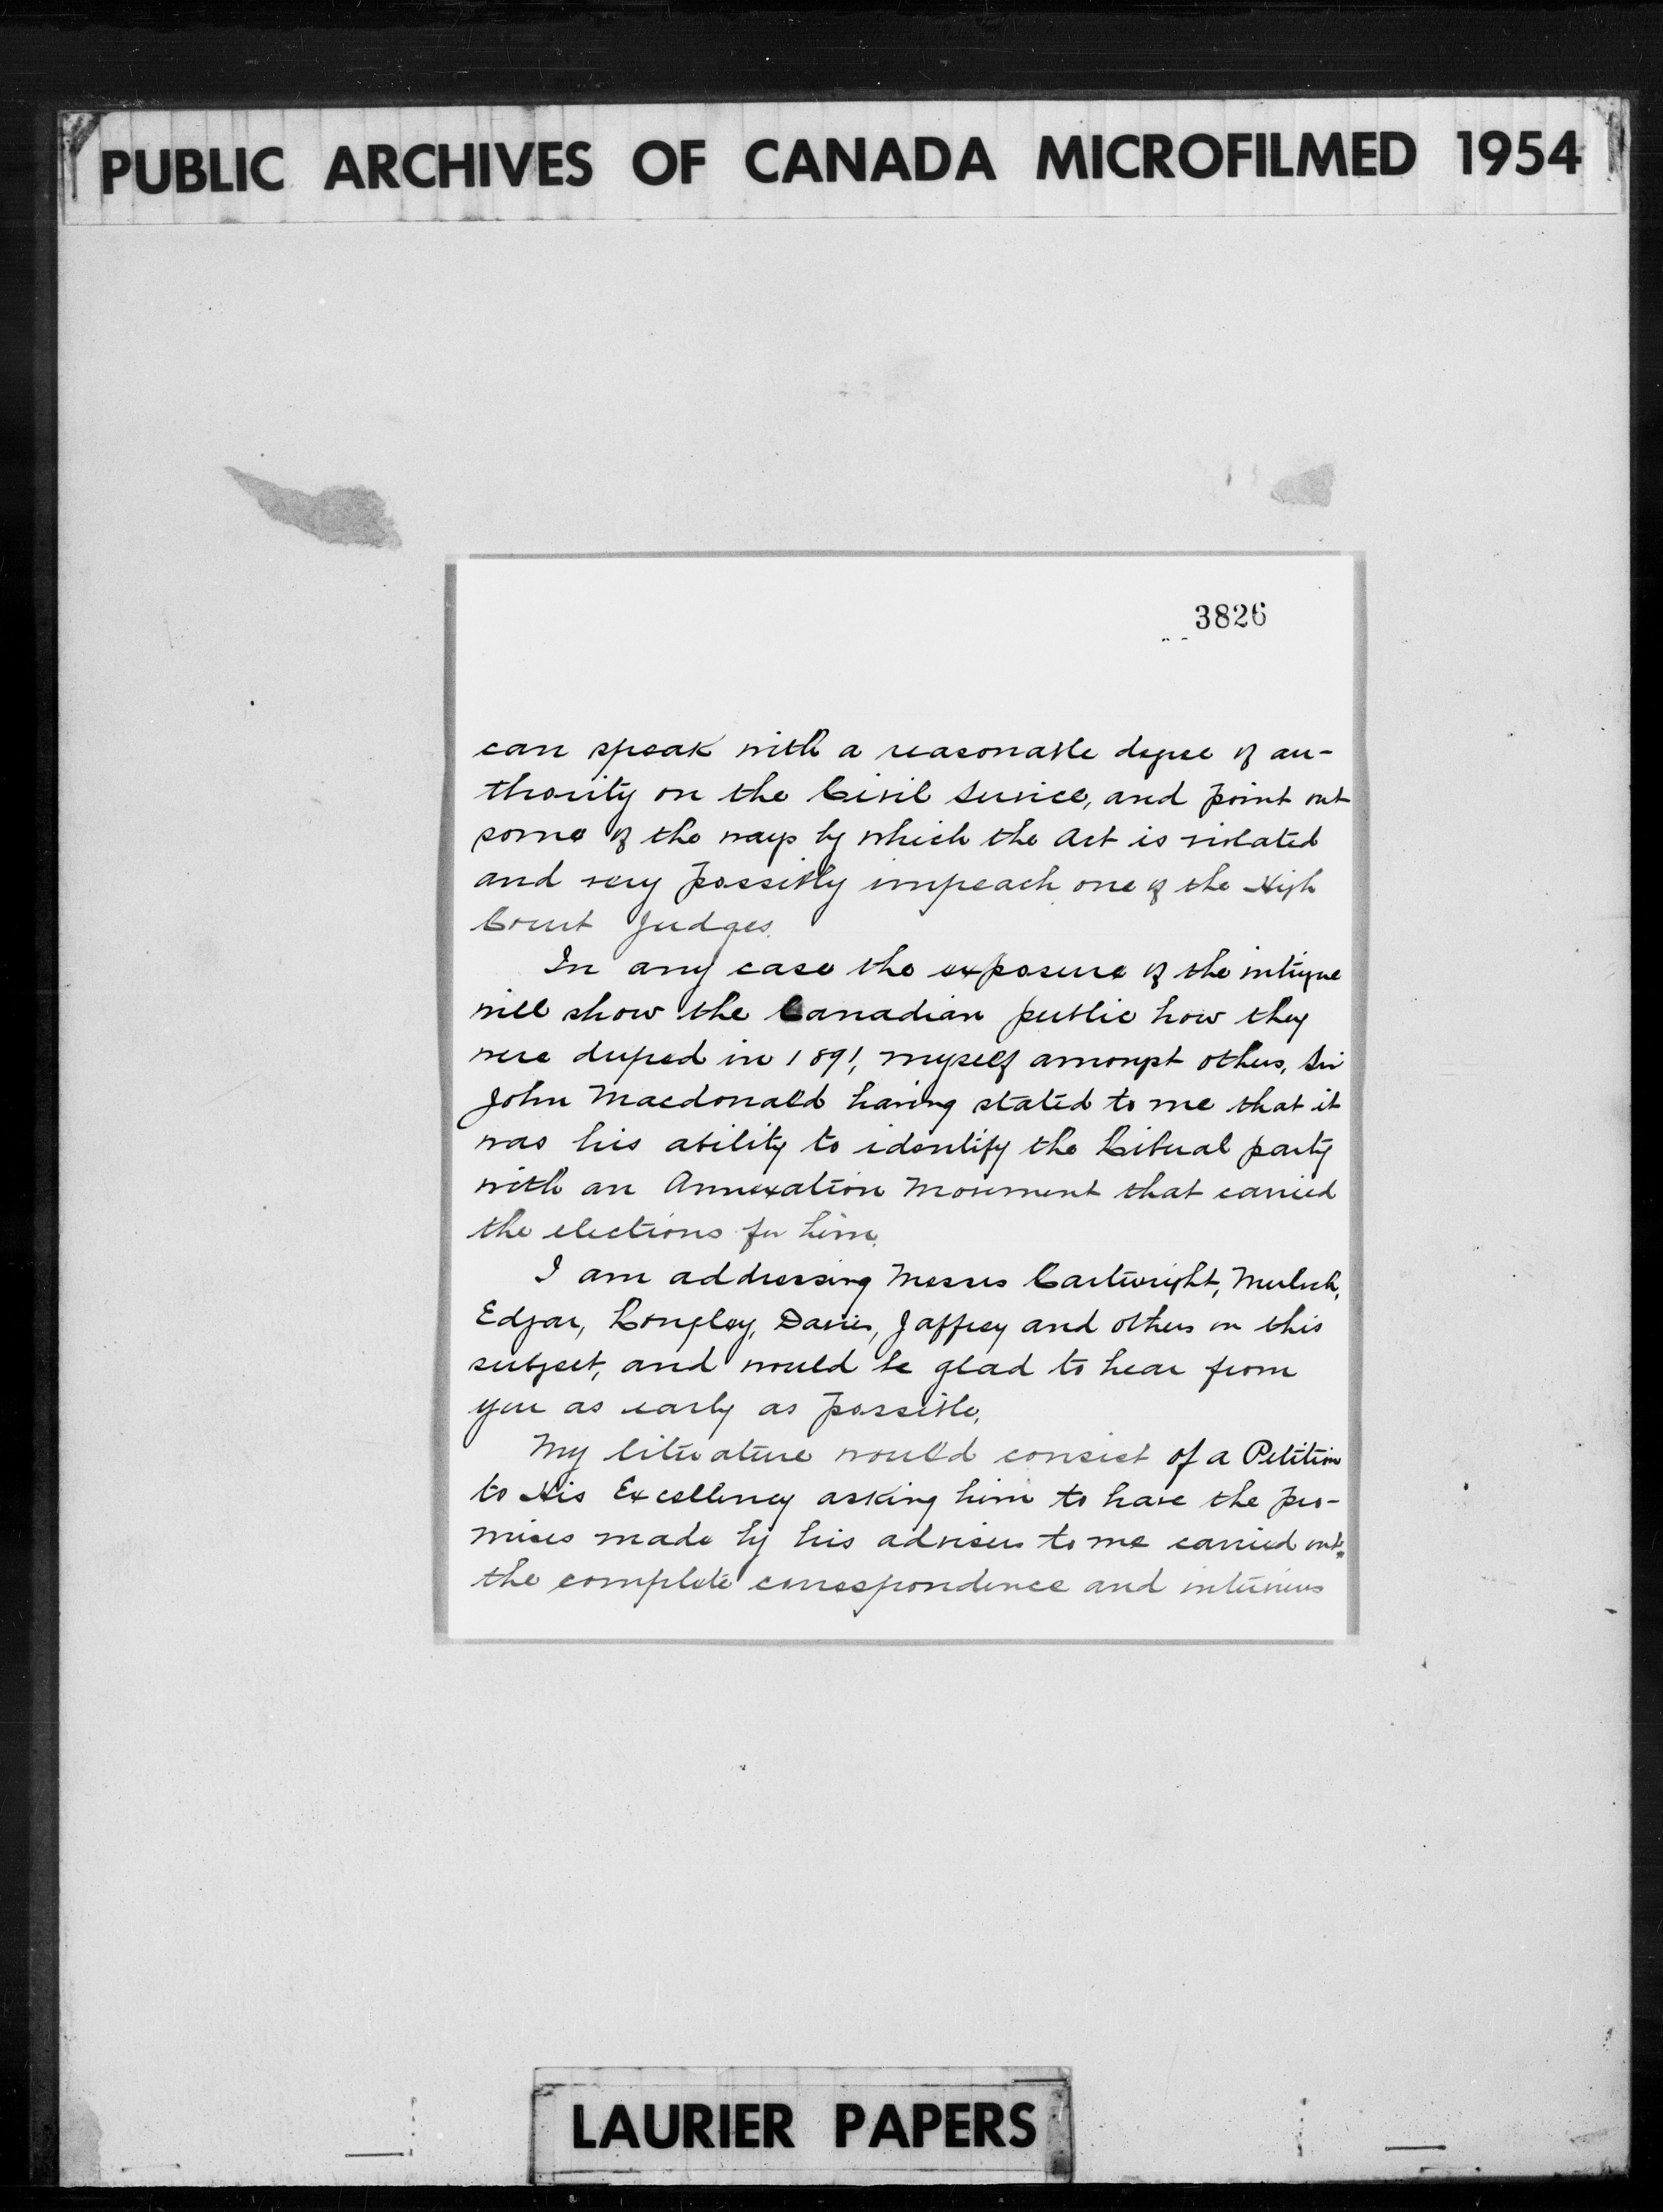 PUBLIC ARCHIVES OF CANADA MICROFILMED 1954
3826
can speak with a reasonable degree of au-
thority on the Civil Service, and point out
some of the ways by which the Act is violated
and very possibly impeach one of the High
Court Judges.
In any case the exposure of the intigue
will show the Canadian public how they
were duped in 1891, myself amongst others, Sir
John Macdonald having stated to me that it
was his ability to identify the Liberal party
with an Annexation Movement that carried
the elections for him.
I am addressing Messrs Cartwright, Mulock,
Edgar, Longley, Davies, Jaffrey and others on this
subject, and would be glad to hear from
you as early as possible.
My literature would consist of a Petition
to His Excellency asking him to have the pro-
mises made by his advisers to me carried out,
the complete correspondence and interviews
LAURIER PAPERS